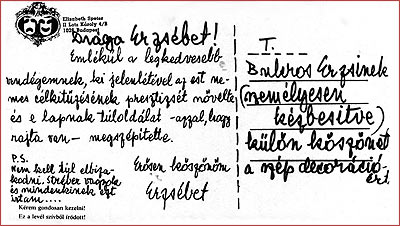 Elizabeth Epstez
II Lotz Károly 4/B
1026 Budapest
Drága Erzsébet!
Emlékül a legkedvesebb
vendégemnek, ki jelenlétével az est ne-
mes célkitűzésének presztizsét növelte
és e lapnak túloldalát -azzal, hogy
rajta van- megszépítette.
Erősen köszönöm
Erzsébet
P.S.
Nem kell túl elbiza-
kodni. Stréber vagyok
és mindenkinek ezt
írtam....
Kérem gondosan kezelni!
Ez a levél szívből íródott!
T.
Bulcros Erzsinek
(személyesen
kézbesítve)
külön köszönet
a szép decoráció-
ért.